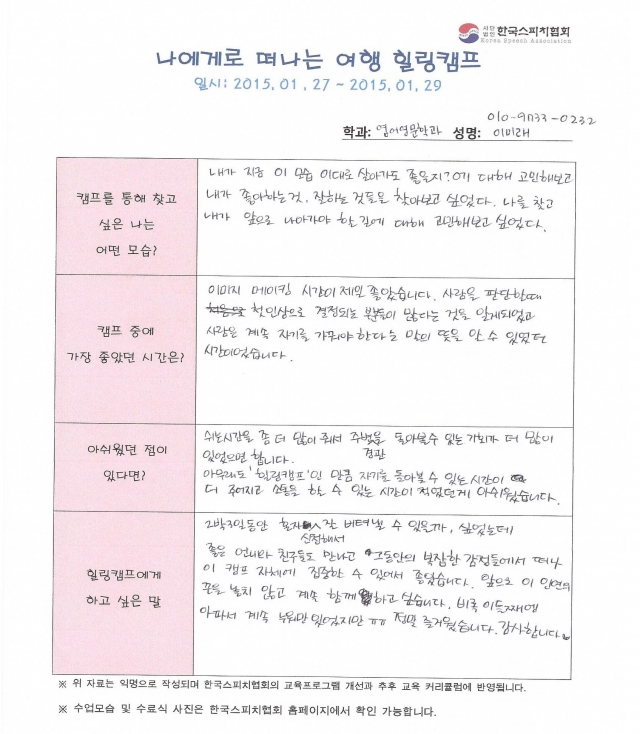 사단법인 한국스피치협회
Korea Speech Association
나에게로 떠나는 여행 힐링캠프
일시: 2015. 01. 27 ~ 2015. 01. 29
010-9033-0232
학과: 영어영문학과 성명: 이미래
캠프를 통해 찾고
싶은 나는
어떤 모습?
내가 지금 이 모습 이대로 살아가도 좋을지?에 대해 고민해보고
내가 좋아하는 것, 잘하는 것들을 찾아보고 싶었다. 나를 찾고
내가 앞으로 나아가야 할 길에 대해 고민해보고 싶었다.
캠프 중에
가장 좋았던 시간은?
이미지 메이킹 시간이 제일 좋았습니다. 사람을 판단할때
첫인상으로 결정되는 부분이 많다는 것을 알게되었고
사람은 계속 자기를 가꿔야한다는 말의 뜻을 알 수 있었던
시간이었습니다.
아쉬웠던 점이
있다면?
쉬는시간을 좀 더 많이 줘서 주변을 돌아볼수 있는 기회가 더 많이
있었으면 합니다. 경관
아무래도 '힐링캠프'인 만큼 자기를 돌아볼 수 있는 시간이
더 주어지고 소통을 할 수 있는 시간이 적었던게 아쉬웠습니다.
힐링캠프에게
하고 싶은 말
2박3일동안 혼자 신청해서 잘 버텨낼 수 있을까, 싶었는데
좋은 언니와 친구들도 만나고 그동안의 복잡한 감정들에서 떠나
이 캠프 자체에 집중할 수 있어서 좋았습니다. 앞으로 이 인연의
끈을 놓치 않고 계속 함께 하고 싶습니다. 비록 이틀째에
아파서 계속 누워만 있었지만 ㅠㅠ 정말 즐거웠습니다. 감사합니다.
※ 위 자료는 익명으로 작성되며 한국스피치협회의 교육프로그램 개선과 추후 교육 커리큘럼에 반영됩니다.
※ 수업모습 및 수료식 사진은 한국스피치협회 홈페이지에서 확인 가능합니다.